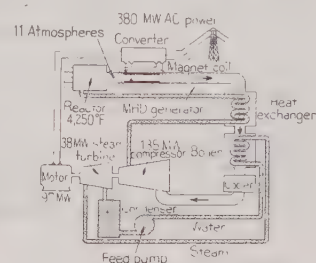 380 MW AC power
11 Atmospheres
Converter
Magnet coil
Reactor
4,250°F
MHD generator
Heat
exchanger
38MW steam
turbine
135 MW
compressor
Boiler
Motor
Water
Steam
Feed pump